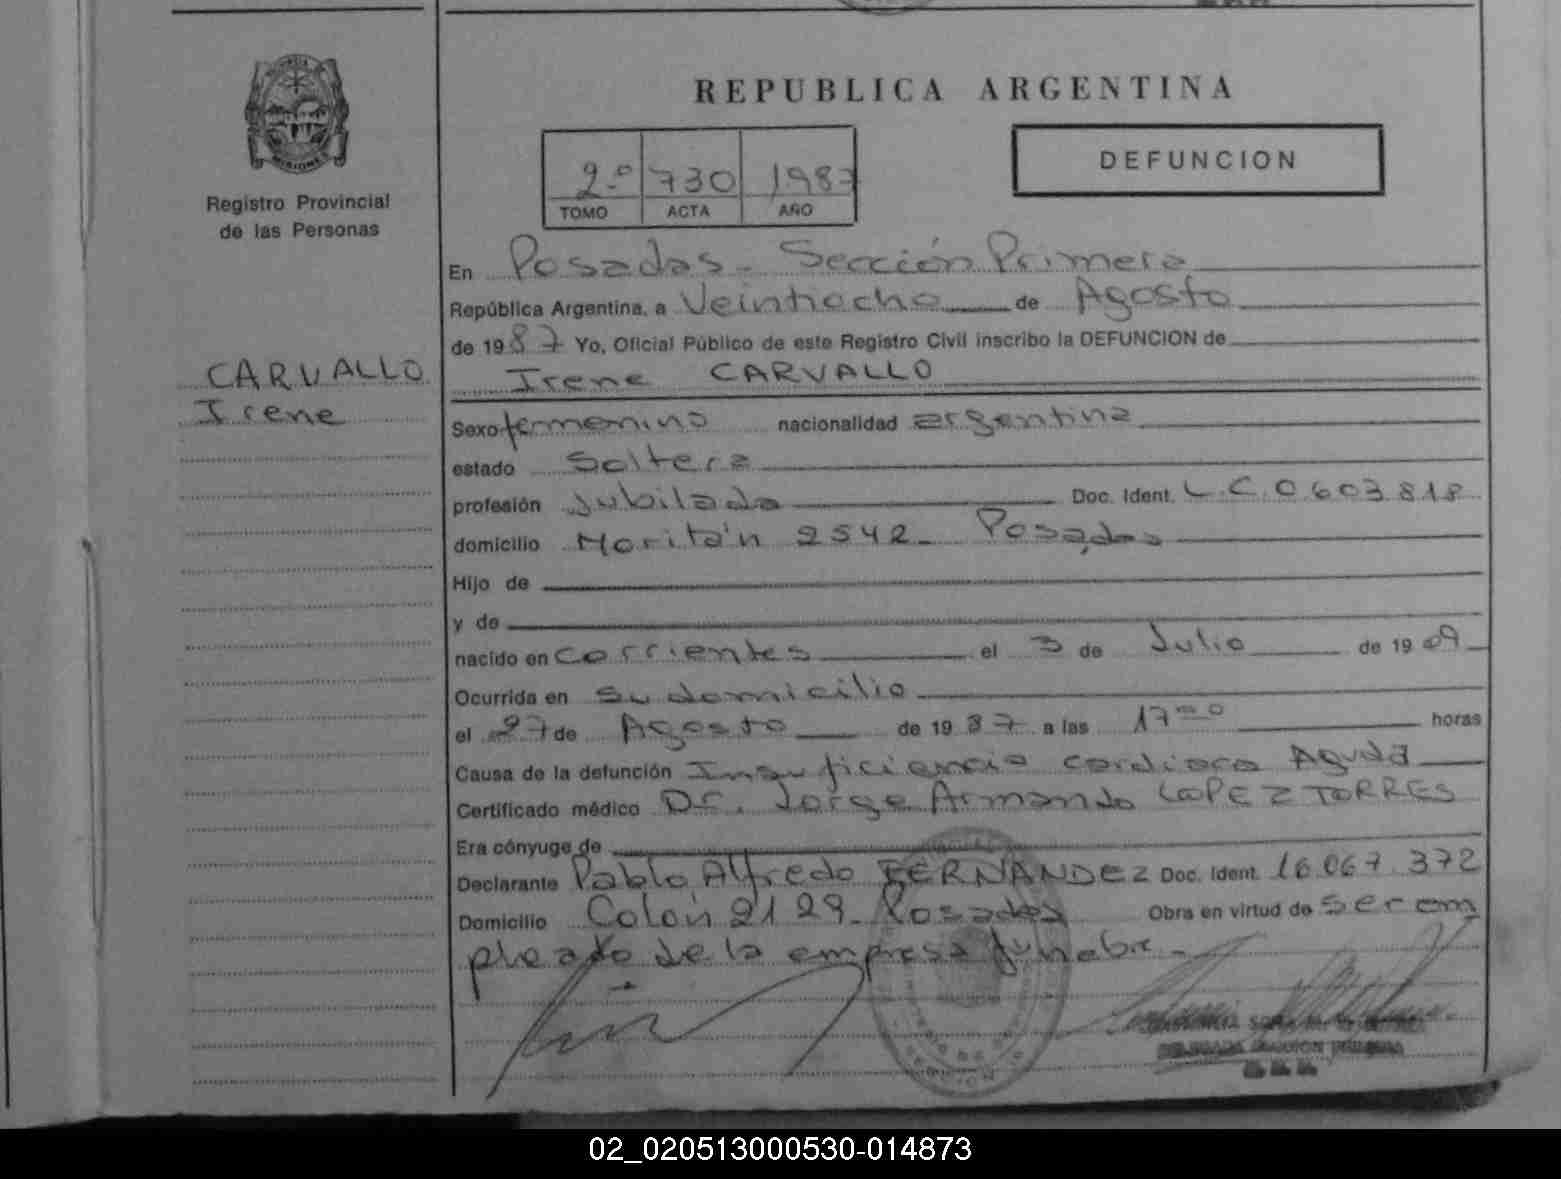 REPUBLICA ARGENTINA
MISIONES
Registro Provincial
de las Personas
2º 730 1987
TOMO ACTA AÑO
DEFUNCION
CARVALLO
Irene
En Posadas - Sección Primera
República Argentina, a Veintiocho de Agosto
de 1987 Yo, Oficial Público de este Registro Civil inscribo la DEFUNCION de
Irene CARVALLO
Sexo femenino nacionalidad argentina
estado Soltera
profesión Jubilada Doc. Ident. L.C.0.603.818
domicilio Moritán 2542 - Posadas
Hijo de
y de
nacido en Corrientes el 3 de Julio de 1909
Ocurrida en su domicilio
el 27 de Agosto de 1987 a las 17 horas
Causa de la defunción Insuficiencia cardiaca Aguda
Certificado médico Dr. Jorge Armando LOPEZ TORRES
Era cónyuge de
Declarante Pablo Alfredo FERNANDEZ Doc. Ident. 16.067.372
Domicilio Colón 2129 - Posadas Obra en virtud de ser em
pleado de la empresa funebre -
02_020513000530-014873